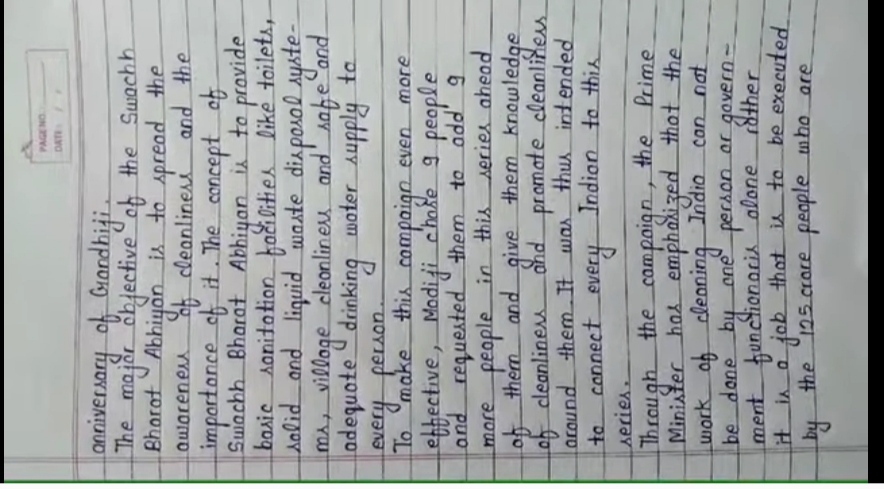 PAGE NO.:
DATE: / /
anniversary of Grandhiji.
The major objective of the Swachh
Bharat Abhiyan is to spread the
awareness of cleanliness and the
importance of it. The concept of
Swachh Bharat Abhiyan is to provide
basic sanitation facilities like toilets,
solid and liquid waste disposal syste-
ms, village cleanliness and safe and
adequate drinking water supply to
every person.
To make this campaign even more
effective, Modiji chose 9 people
and requested them to add 9
more people in this series ahead
of them and give them knowledge
of cleanliness and promote cleanliness
around them It was thus intended
to connect every Indian to this
series.
Through the campaign, the Prime
Minister has emphasized that the
work of cleaning India can not
be done by one person or govern-
ment functionaris alone rather
it is a job that is to be executed
by the 125 crore people who are